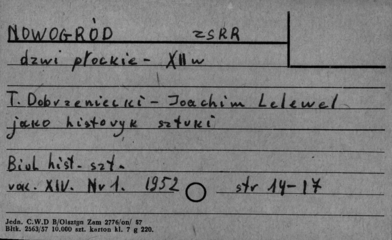 NOWOGRÓD ZSRR
dzwi płockie - XII w
T. Dobrzeniecki - Joachim Lelewel
jako historyk sztuki
Biul hist. szt.
rok. XIV. Nr 1. 1952 str 14-17
Jedn. C.W.D B/Olsztyn Zam 2776/on/ 57
Bltk. 2563/57 10.000 szt. karton kl. 7 g 220.